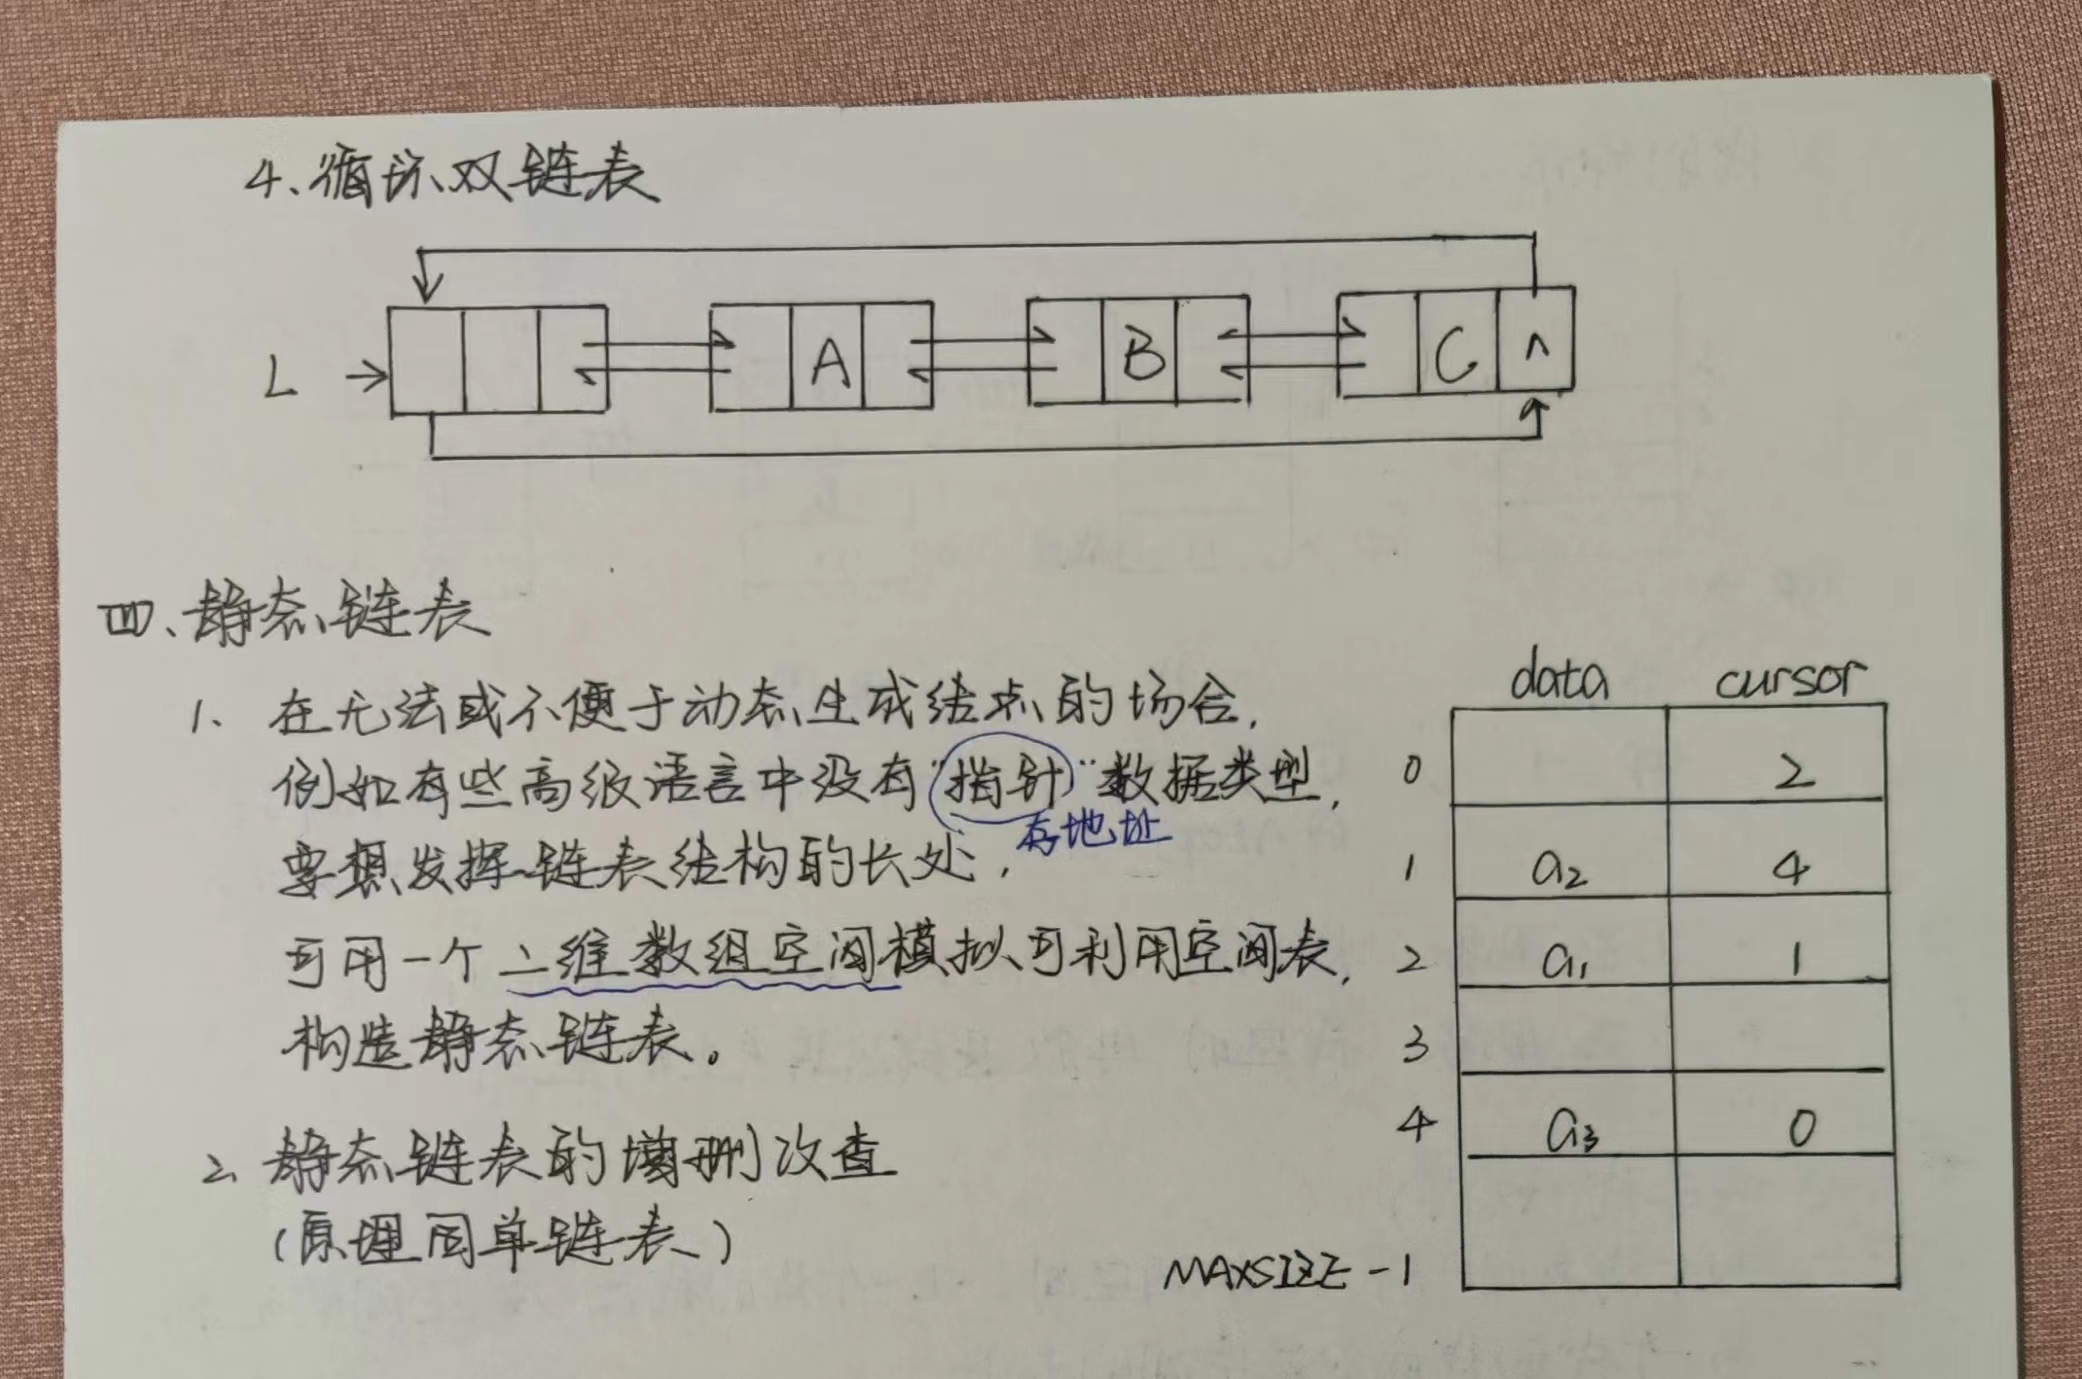 4、循环双链表
L A B C ∧
四、静态链表
1、在无法或不便于动态生成结点的场合，
例如有些高级语言中没有"指针"数据类型，
存地址
要想发挥链表结构的长处，
可用一个二维数组空间模拟可利用空间表，
构造静态链表。
2、静态链表的增删改查
（原理同单链表）
data cursor
0 2
1 a₂ 4
2 a₁ 1
3
4 a₃ 0
MAXSIZE-1